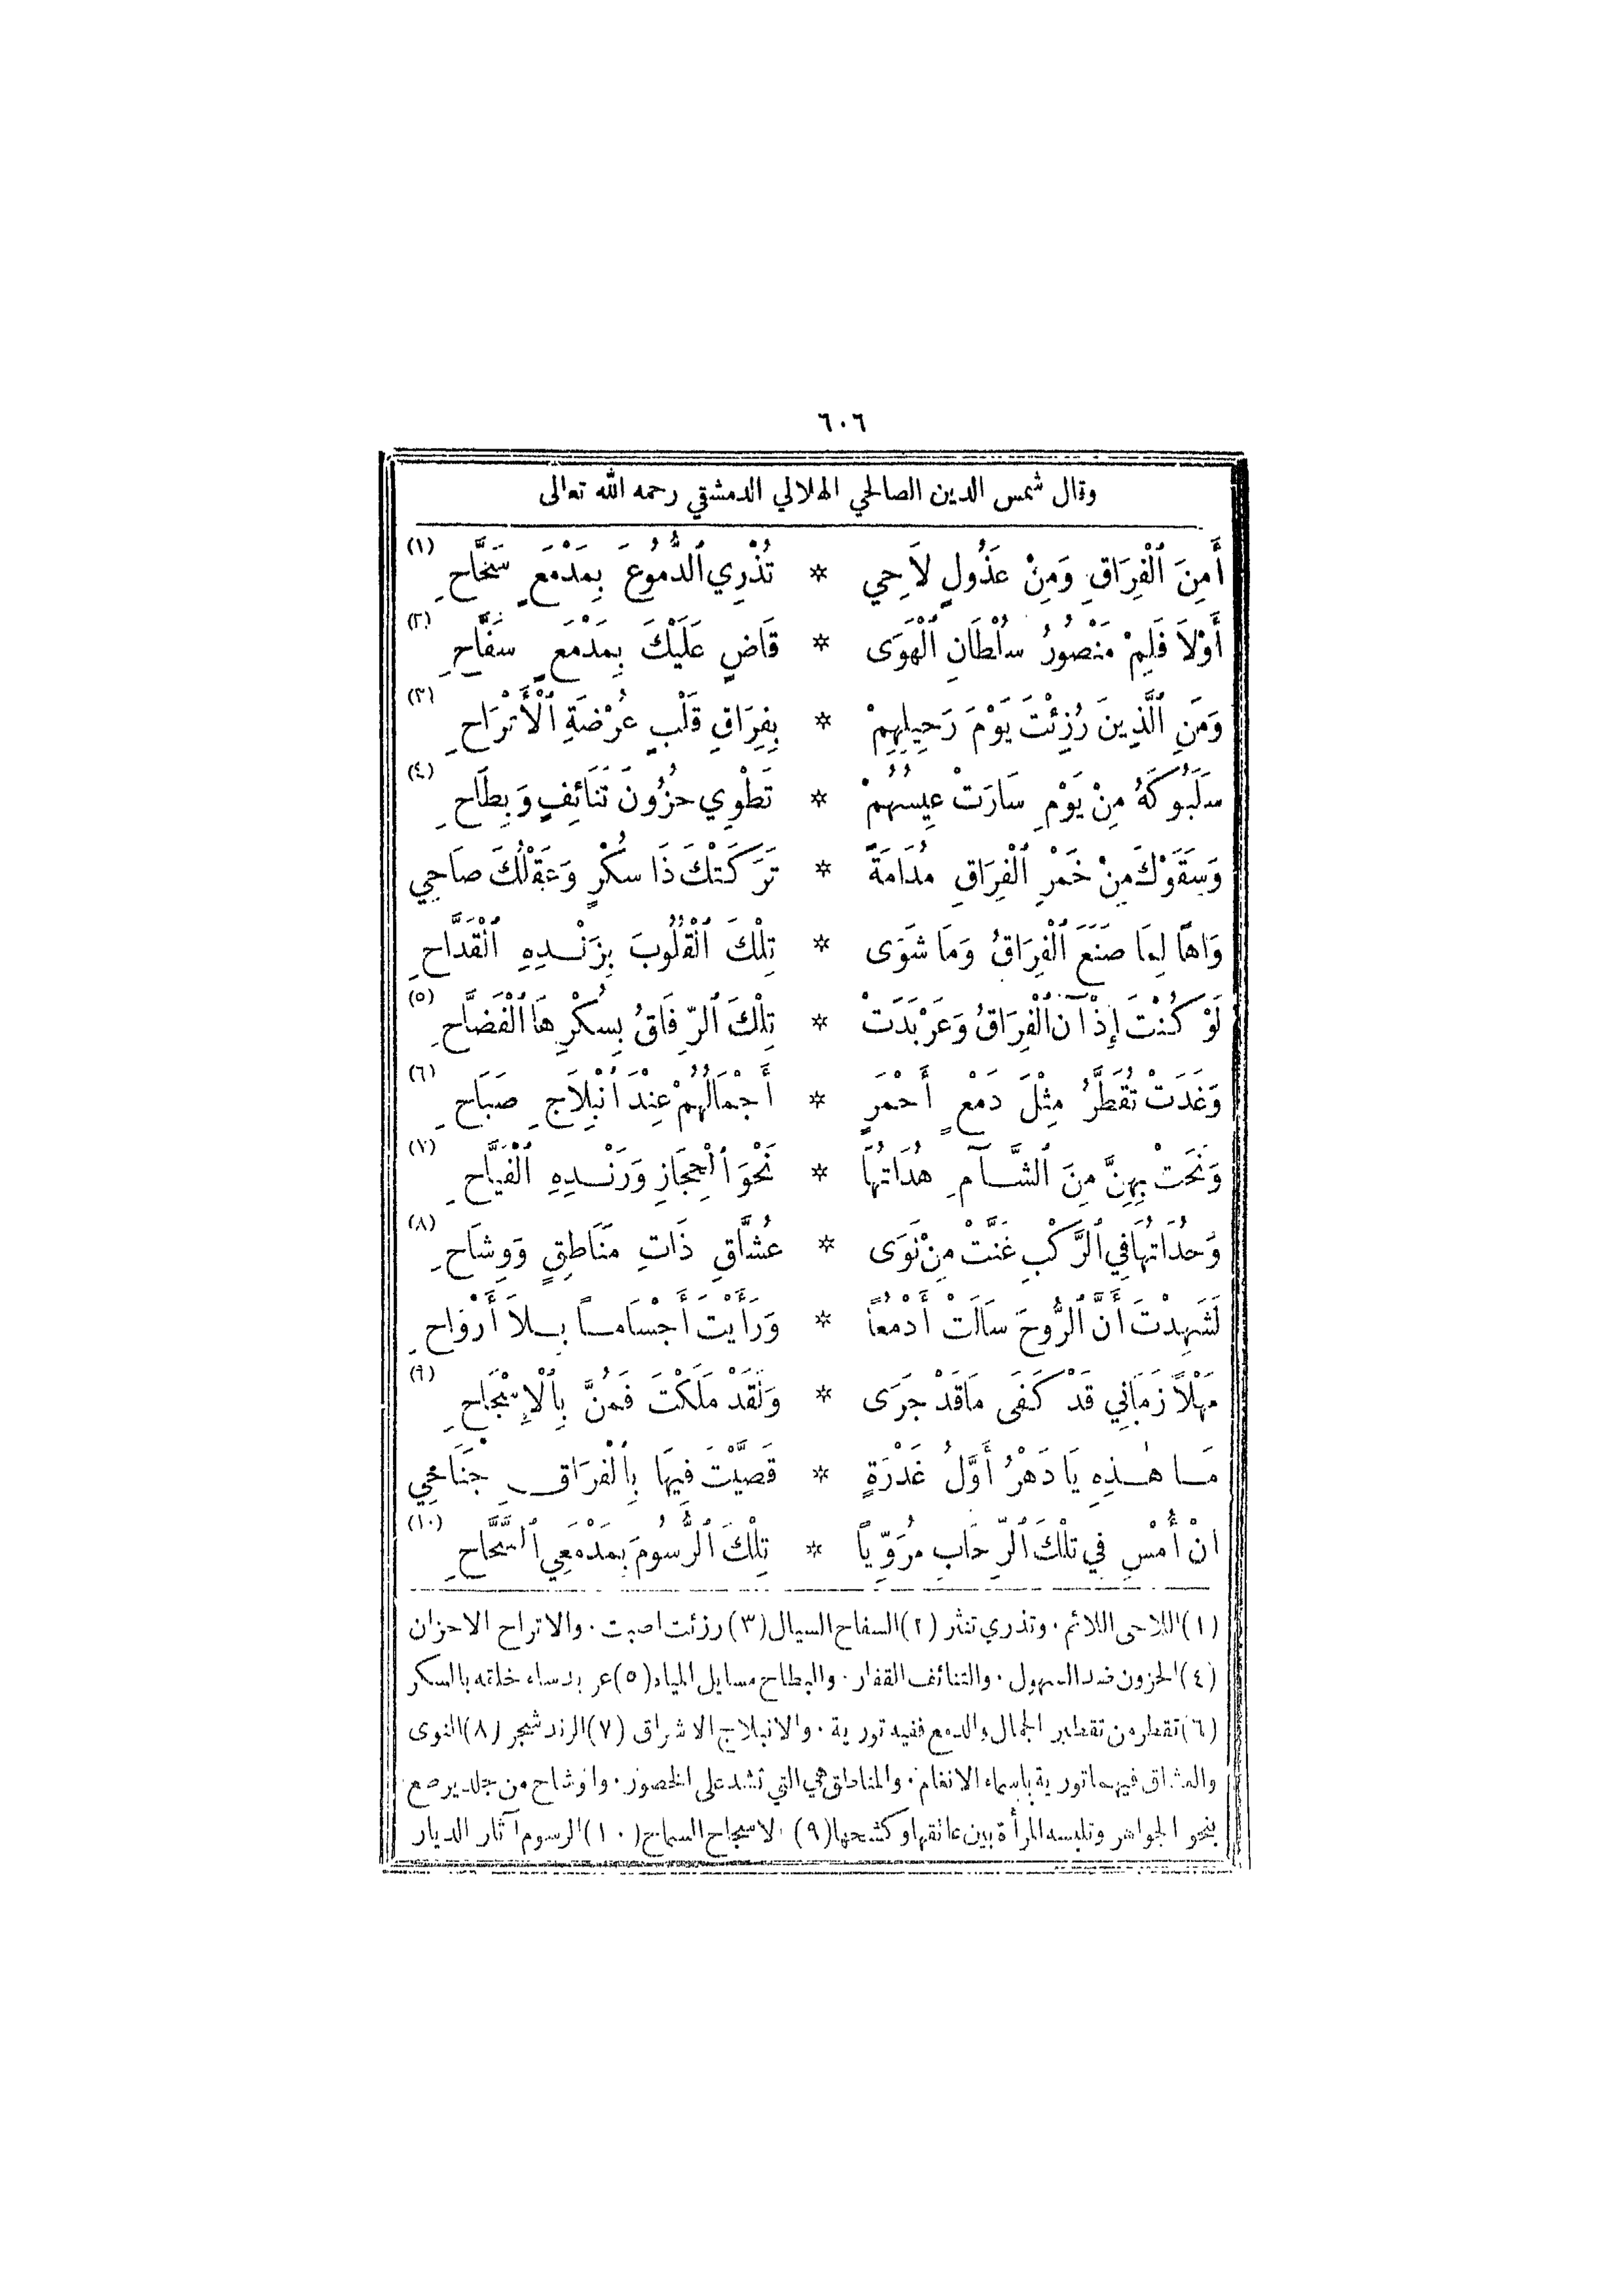 ٦٠٦
وقال شمس الدين الصالحي الهلالي الدمشقي رحمه الله تعالى
أَمِنَ ٱلْفِرَاقِ وَمِنْ عَذُولٍ لاَحِي * تُذْرِي ٱلدُّمُوعَ بِمَدْمَعٍ سَحَّاحِ (١)
أَوْلاَ فَلِمْ مَنْصُورُ سُلْطَانِ ٱلْهَوَى * قَاضٍ عَلَيْكَ بِمَدْمَعٍ سَفَّاحِ (٢)
وَمَنِ ٱلَّذِينَ رُزِئْتَ يَوْمَ رَحِيلِهِمْ * بِفِرَاقِ قَلْبٍ عُرْضَةِ ٱلْأَتْرَاحِ (٣)
سَلَبُوكَهُ مِنْ يَوْمِ سَارَتْ عِيسُهُمْ * تَطْوِي حُزُونَ تَنَائِفٍ وَبِطَاحِ (٤)
وَسَقَوْكَ مِنْ خَمْرِ ٱلْفِرَاقِ مُدَامَةً * تَرَكَتْكَ ذَا سُكْرٍ وَعَقْلُكَ صَاحِي
وَاهًا لِمَا صَنَعَ ٱلْفِرَاقُ وَمَا شَوَى * تِلْكَ ٱلْقُلُوبَ بِزَنْدِهِ ٱلْقَدَّاحِ
لَوْ كُنْتَ إِذْ آنَ ٱلْفِرَاقُ وَعَرْبَدَتْ * تِلْكَ ٱلرِّفَاقُ بِسُكْرِهَا ٱلْفَضَّاحِ (٥)
وَغَدَتْ تُقَطَّرُ مِثْلَ دَمْعٍ أَحْمَرٍ * أَجْمَالُهُمْ عِنْدَ ٱنْبِلاَجِ صَبَاحِ (٦)
وَنَحَتْ بِهِنَّ مِنَ ٱلشَّآمِ هُدَاتُهَا * نَحْوَ ٱلْحِجَازِ وَرَنْدِهِ ٱلْفَيَّاحِ (٧)
وَحُدَاتُهَا فِي ٱلرَّكْبِ غَنَّتْ مِنْ نَوَى * عُشَّاقِ ذَاتِ مَنَاطِقٍ وَوِشَاحِ (٨)
لَشَهِدْتَ أَنَّ ٱلرُّوحَ سَالَتْ أَدْمُعًا * وَرَأَيْتَ أَجْسَامًا بِلاَ أَرْوَاحِ
مَهْلاً زَمَانِي قَدْ كَفَى مَا قَدْ جَرَى * وَلَقَدْ مَلَكْتَ فَمُنَّ بِٱلْإِسْجَاحِ (٩)
مَا هٰذِهِ يَا دَهْرُ أَوَّلُ غَدْرَةٍ * قَصَّيْتَ فِيهَا بِٱلْفِرَاقِ جَنَاحِي
انْ أُمْسِ فِي تِلْكَ ٱلرِّحَابِ مُرَوِّيًا * تِلْكَ ٱلرُّسُومَ بِمَدْمَعِي ٱلسَّحَّاحِ (١٠)
(١) اللاحي اللائم . وتذري تنثر (٢) السفاح السيال (٣) رزئت اصبت . والاتراح الاحزان
(٤) الحزون ضد السهول . والتنائف القفار . والبطاح مسايل المياه (٥) عربد ساء خلقه بالسكر
(٦) تقطر من تقطير الجمال والدمع ففيه تورية . والانبلاج الاشراق (٧) الرند شجر (٨) النوى
والعشاق فيهما تورية باسماء الانغام . والمناطق هي التي تشد على الخصور . والوشاح من جلد يرصع
بنحو الجواهر وتلبسه المرأة بين عاتقها وكشحها (٩) الاسجاح السماح (١٠) الرسوم آثار الديار